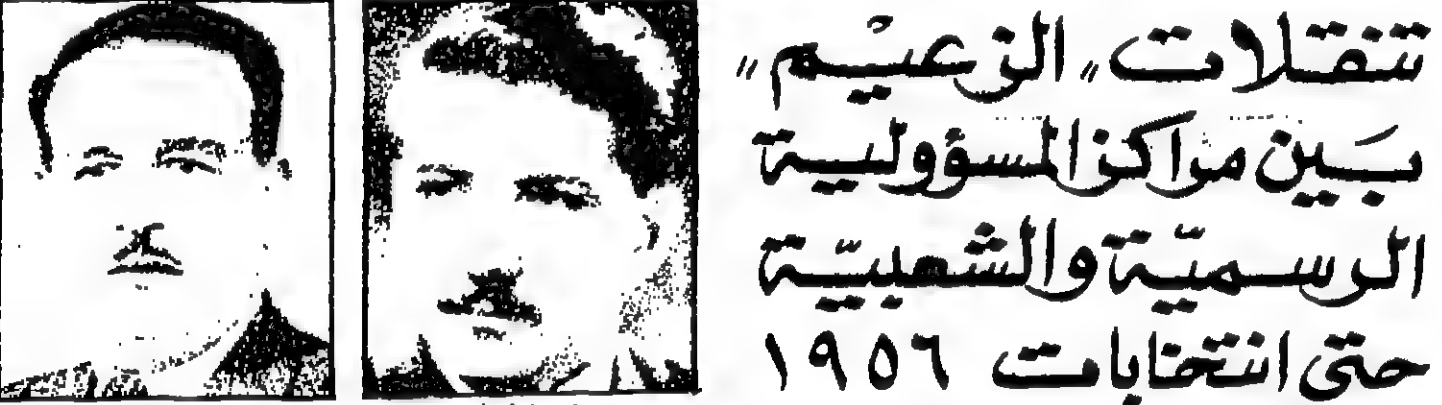 تنقلات "الزعيم"
بين مراكز المسؤولية
الرسميّة والشعبيّة
حتى انتخابات ١٩٥٦